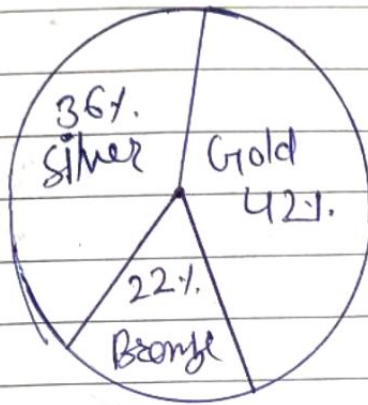 36%.
Silver
Gold
42%.
22%.
Bronze